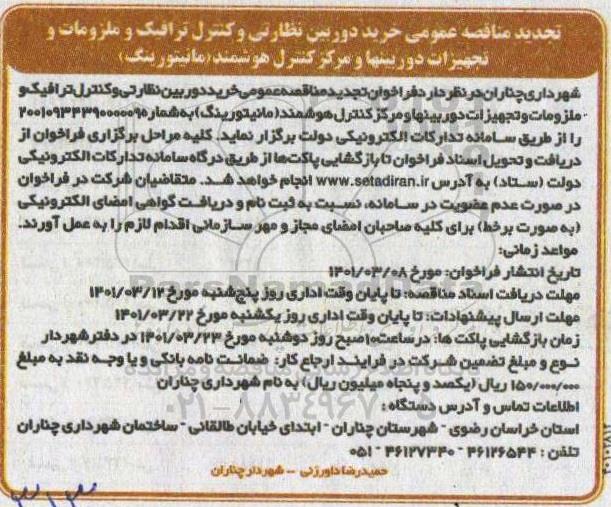 تجدید مناقصه عمومی خرید دوربین نظارتی و کنترل ترافیک و ملزومات و
تجهیزات دوربینها و مرکز کنترل هوشمند (مانیتورینگ)
شهرداری چناران در نظر دارد فراخوان تجدید مناقصه عمومی خرید دوربین نظارتی و کنترل ترافیک و
ملزومات و تجهیزات دوربینها و مرکز کنترل هوشمند (مانیتورینگ) به شماره ۲۰۰۱۰۹۳۴۳۹۰۰۰۰۰۹
را از طریق سامانه تدارکات الکترونیکی دولت برگزار نماید. کلیه مراحل برگزاری فراخوان از
دریافت و تحویل اسناد فراخوان تا بازگشایی پاکت‌ها از طریق درگاه سامانه تدارکات الکترونیکی
دولت (ستاد) به آدرس www.setadiran.ir انجام خواهد شد. متقاضیان شرکت در فراخوان
در صورت عدم عضویت در سامانه، نسبت به ثبت نام و دریافت گواهی امضای الکترونیکی
(به صورت برخط) برای کلیه صاحبان امضای مجاز و مهر سازمانی اقدام لازم را به عمل آورند.
مواعد زمانی:
تاریخ انتشار فراخوان: مورخ ۱۴۰۱/۰۳/۰۸
مهلت دریافت اسناد مناقصه: تا پایان وقت اداری روز پنج‌شنبه مورخ ۱۴۰۱/۰۳/۱۲
مهلت ارسال پیشنهادات: تا پایان وقت اداری روز یکشنبه مورخ ۱۴۰۱/۰۳/۲۲
زمان بازگشایی پاکت ها: در ساعت ۱۰ صبح روز دوشنبه مورخ ۱۴۰۱/۰۳/۲۳ در دفتر شهردار
نوع و مبلغ تضمین شرکت در فرایند ارجاع کار: ضمانت نامه بانکی و یا وجه نقد به مبلغ
۱۵۰/۰۰۰/۰۰۰ ریال (یکصد و پنجاه میلیون ریال) به نام شهرداری چناران
اطلاعات تماس و آدرس دستگاه:
استان خراسان رضوی - شهرستان چناران - ابتدای خیابان طالقانی - ساختمان شهرداری چناران
تلفن : ۴۶۱۲۶۵۴۴ - ۴۶۱۲۷۳۴۰ - ۰۵۱
حمیدرضا داورزنی - شهردار چناران
۰۲۱-۸۸۳۴۹۶۷۰-۵